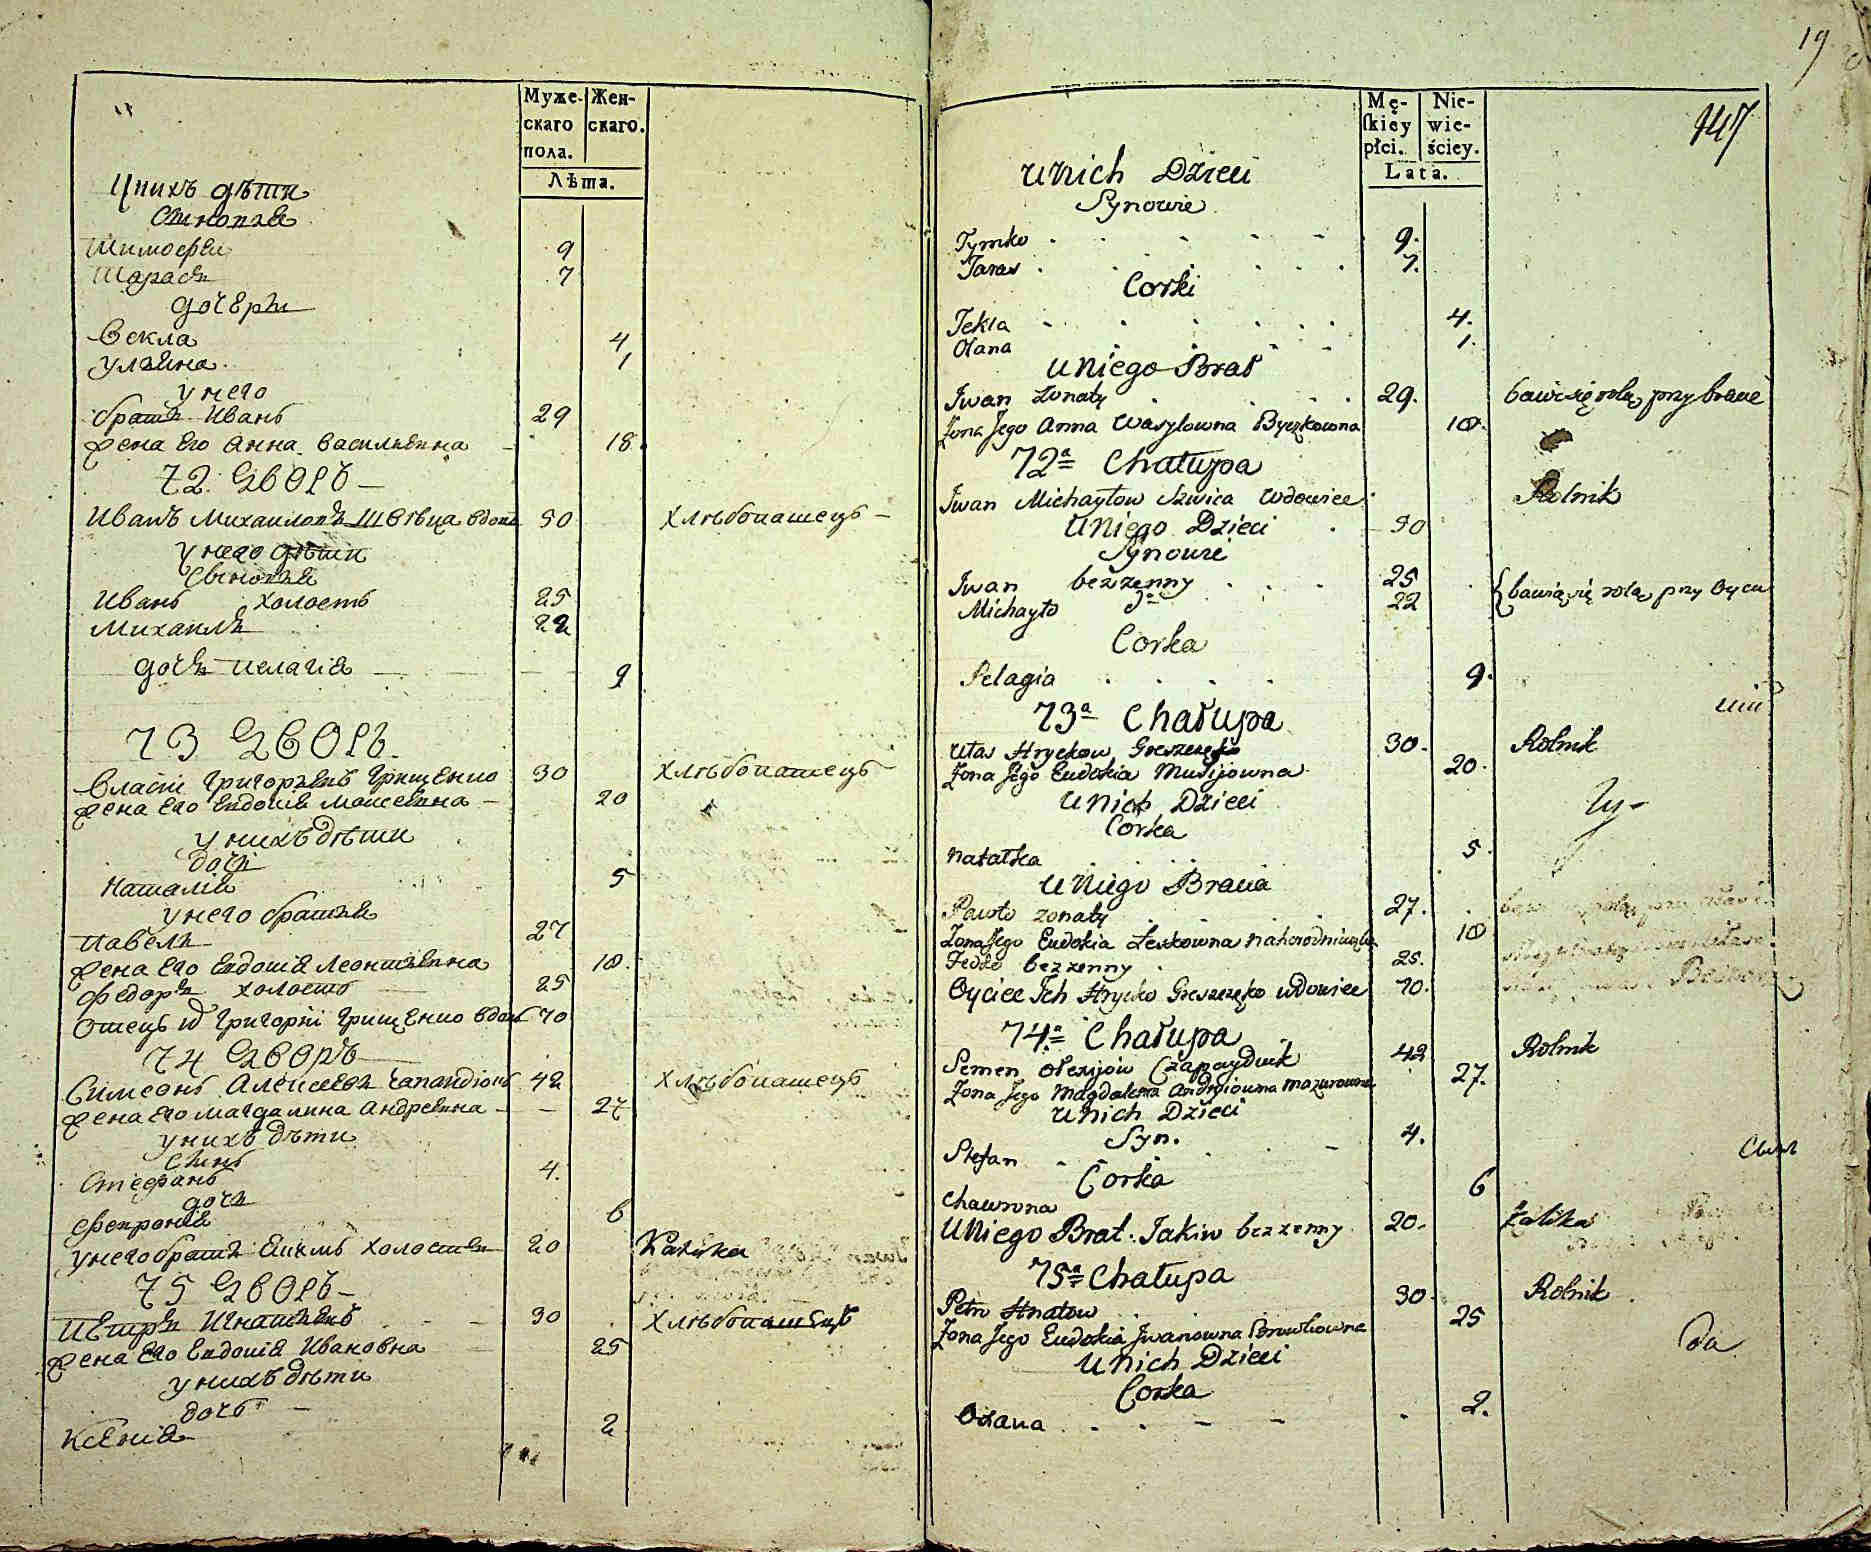 Муже-
скаго
пола.
Жен-
скаго.
Лѣта.
У нихъ дѣти
Сыновья
Тимофей 9
Тарасъ 7
дочери
Векла 4
Ульяна 1
у него
братъ Иванъ 29
жена Его Анна Васильевна 18
72 Дворъ
Иванъ Михаиловъ Швѣца вдовъ 50 Хлѣбопашецъ
у него дѣти
Сыновья
Иванъ холостъ 25
Михаилъ 22
дочь Пелагія 9
73 Дворъ
Власій Григорьевъ Грищенко 30 Хлѣбопашецъ
жена Его Евдокія Моисеевна 20
у нихъ дѣти
дочь
Наталія 5
у него братья
Павелъ 27
жена Его Евдокія Леонтьевна 18
Федоръ холостъ 25
Отецъ Григорій Грищенко вдовъ 70
74 Дворъ
Симеонъ Алексеевъ 42 Хлѣбопашецъ
жена Его Магдалина Андреевна 27
у нихъ дѣти
Сынъ
Стефанъ 4.
дочь
Февронія 6
у него братъ Екимъ холостъ 20 Kalika
75 Дворъ
Петръ Игнатьевъ 30 Хлѣбопашецъ
жена Его Евдокія Ивановна 25
у нихъ дѣти
дочь
Ксенія 2
19
147
Mę-
ſkiey
płci.
Nie-
wie-
ściey.
Lata.
U nich Dzieci
Synowie
Tymko 9.
Taras 7.
Corki
Tekla 4.
Olana 1.
U niego Brat
Iwan żonaty 29. bawi się rolą przy bracie
Zona Jego Anna Wasylowna Byczkowna 18.
72a Chałupa
Iwan Michayłow Szwica wdowiec Rolnik
U niego Dzieci 50
Synowie
Iwan bezżenny 25
Michayło do 22 bawią się rolą przy Oycu
Corka
Pelagia 9.
73a Chałupa
Ułas Hryckow 30. Rolnik
Zona Jego Eudokia Musijowna 20.
U nich Dzieci
Corka
Natałka 5.
U niego Bracia
Pawło żonaty 27.
Zona Jego Eudokia Leskowna 18
Fedko bezżenny 25.
Oyciec Ich Hrycko wdowiec 70.
74a Chałupa
Semen Olexijow 42 Rolnik
Zona Jego Magdalena Andryiowna Mazurowna 27.
U nich Dzieci
Syn.
Stefan 4.
Corka
Chawrona 6
U niego Brat Jakiw bezżenny 20. kalika
75a Chałupa
Petro Hnatow 30. Rolnik
Zona Jego Eudokia Iwanowna 25
U nich Dzieci
Corka
Oxana 2.